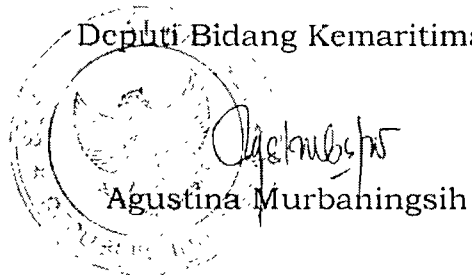 Deputi Bidang Kemaritima
Agustina Murbaningsih